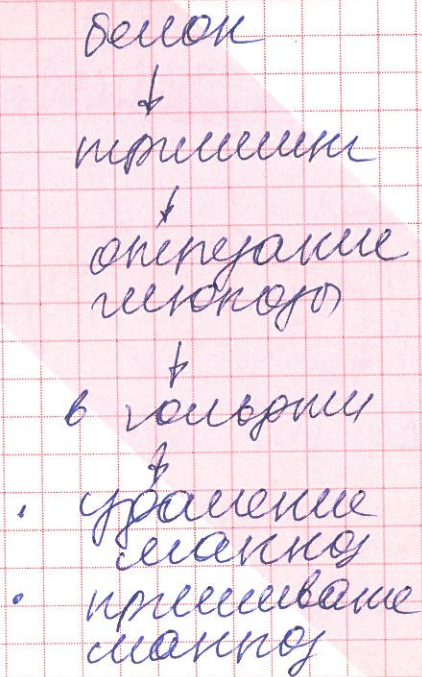 белок
↓
тримминг
↓
отрезание
глюкозы
↓
в гольджи
↓
• удаление
манноз
• пришивание
манноз